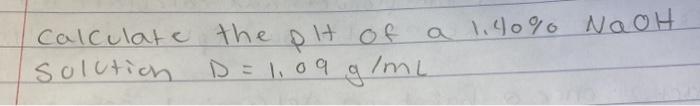 Calculate the pH of a 1.40% NaOH
Solution D = 1.09 g/mL